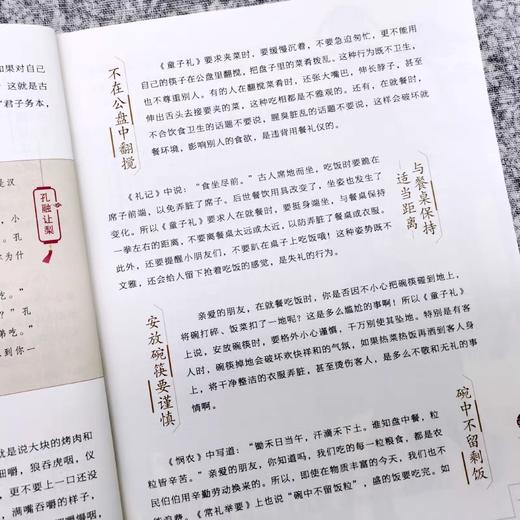 如果对自己
这就是古
“君子务本，
是汉
小
孔
你为什
吃。”
”孔
弟吃。”
到你一
孔融让梨
就是说大块的烤肉和
细嚼，狼吞虎咽，仪
更不要上一口还没
满嘴吞嚼的样子，
慢慢咀嚼，细嚼慢咽，
不在公盘中翻搅
《童子礼》要求夹菜时，要缓慢沉着，不要急迫匆忙，更不能用
自己的筷子在公盘里翻搅，把盘子里的菜肴拨乱。这种行为既不卫生，
也不尊重别人。有的人在翻搅菜肴时，还张大嘴巴，伸长脖子，甚至
伸出舌头去接要夹的菜，这种吃相都是不雅观的。还有，在就餐时，
不合饮食卫生的话题不要说，腥臭脏乱的话题不要说，这样会破坏就
餐环境，影响别人的食欲，是违背用餐礼仪的。
与餐桌保持
适当距离
《礼记》中说：“食坐尽前。”古人席地而坐，吃饭时要跪在
席子前端，以免弄脏了席子。后世餐饮用具改变了，坐姿也发生了
变化。所以《童子礼》要求人在就餐时，要挺身端坐，与餐桌保持
一拳左右的距离，不要离餐桌太远或太近，以防弄脏了餐桌或衣服。
此外，还要提醒小朋友们，不要趴在桌子上吃饭哦！这种姿势既不
文雅，还会给人留下抢着吃饭的感觉，是失礼的行为。
安放碗筷要谨慎
亲爱的朋友，在就餐吃饭时，你是否因不小心把碗碰到地上，
将碗打碎、饭菜扣了一地呢？这是多么尴尬的事啊！所以《童子礼》
上说，安放碗筷时，要格外小心谨慎，千万别使其坠地。特别是有客
人时，碗筷掉地会破坏欢快祥和的气氛，如果热菜热饭再洒到客人身
上，将干净整洁的衣服弄脏，甚至烫伤客人，是多么不敬和无礼的事
情啊。
碗中不留剩饭
《悯农》中写道：“锄禾日当午，汗滴禾下土。谁知盘中餐，粒
粒皆辛苦。”亲爱的朋友，你知道吗，我们吃的每一粒粮食，都是农
民伯伯用辛勤劳动换来的。所以，即使在物质丰富的今天，我们也不
能浪费。《常礼举要》上也说“碗中不留饭粒”，盛的饭要吃完。如